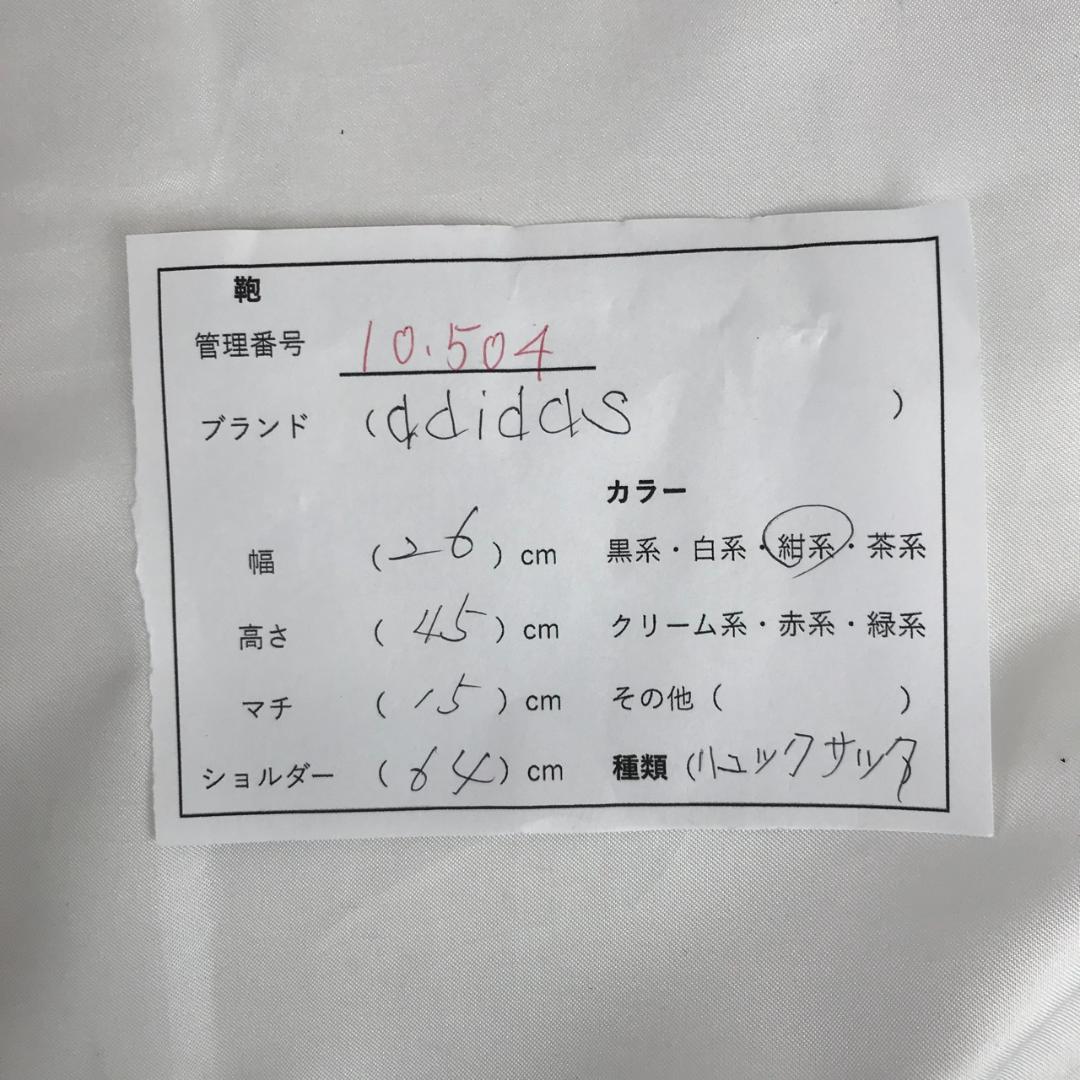 鞄
管理番号 10.504
ブランド (adidas )
カラー
幅 (26) cm 黒系・白系・紺系・茶系
高さ (45) cm クリーム系・赤系・緑系
マチ (15) cm その他 ( )
ショルダー (64) cm 種類 (リュックサック